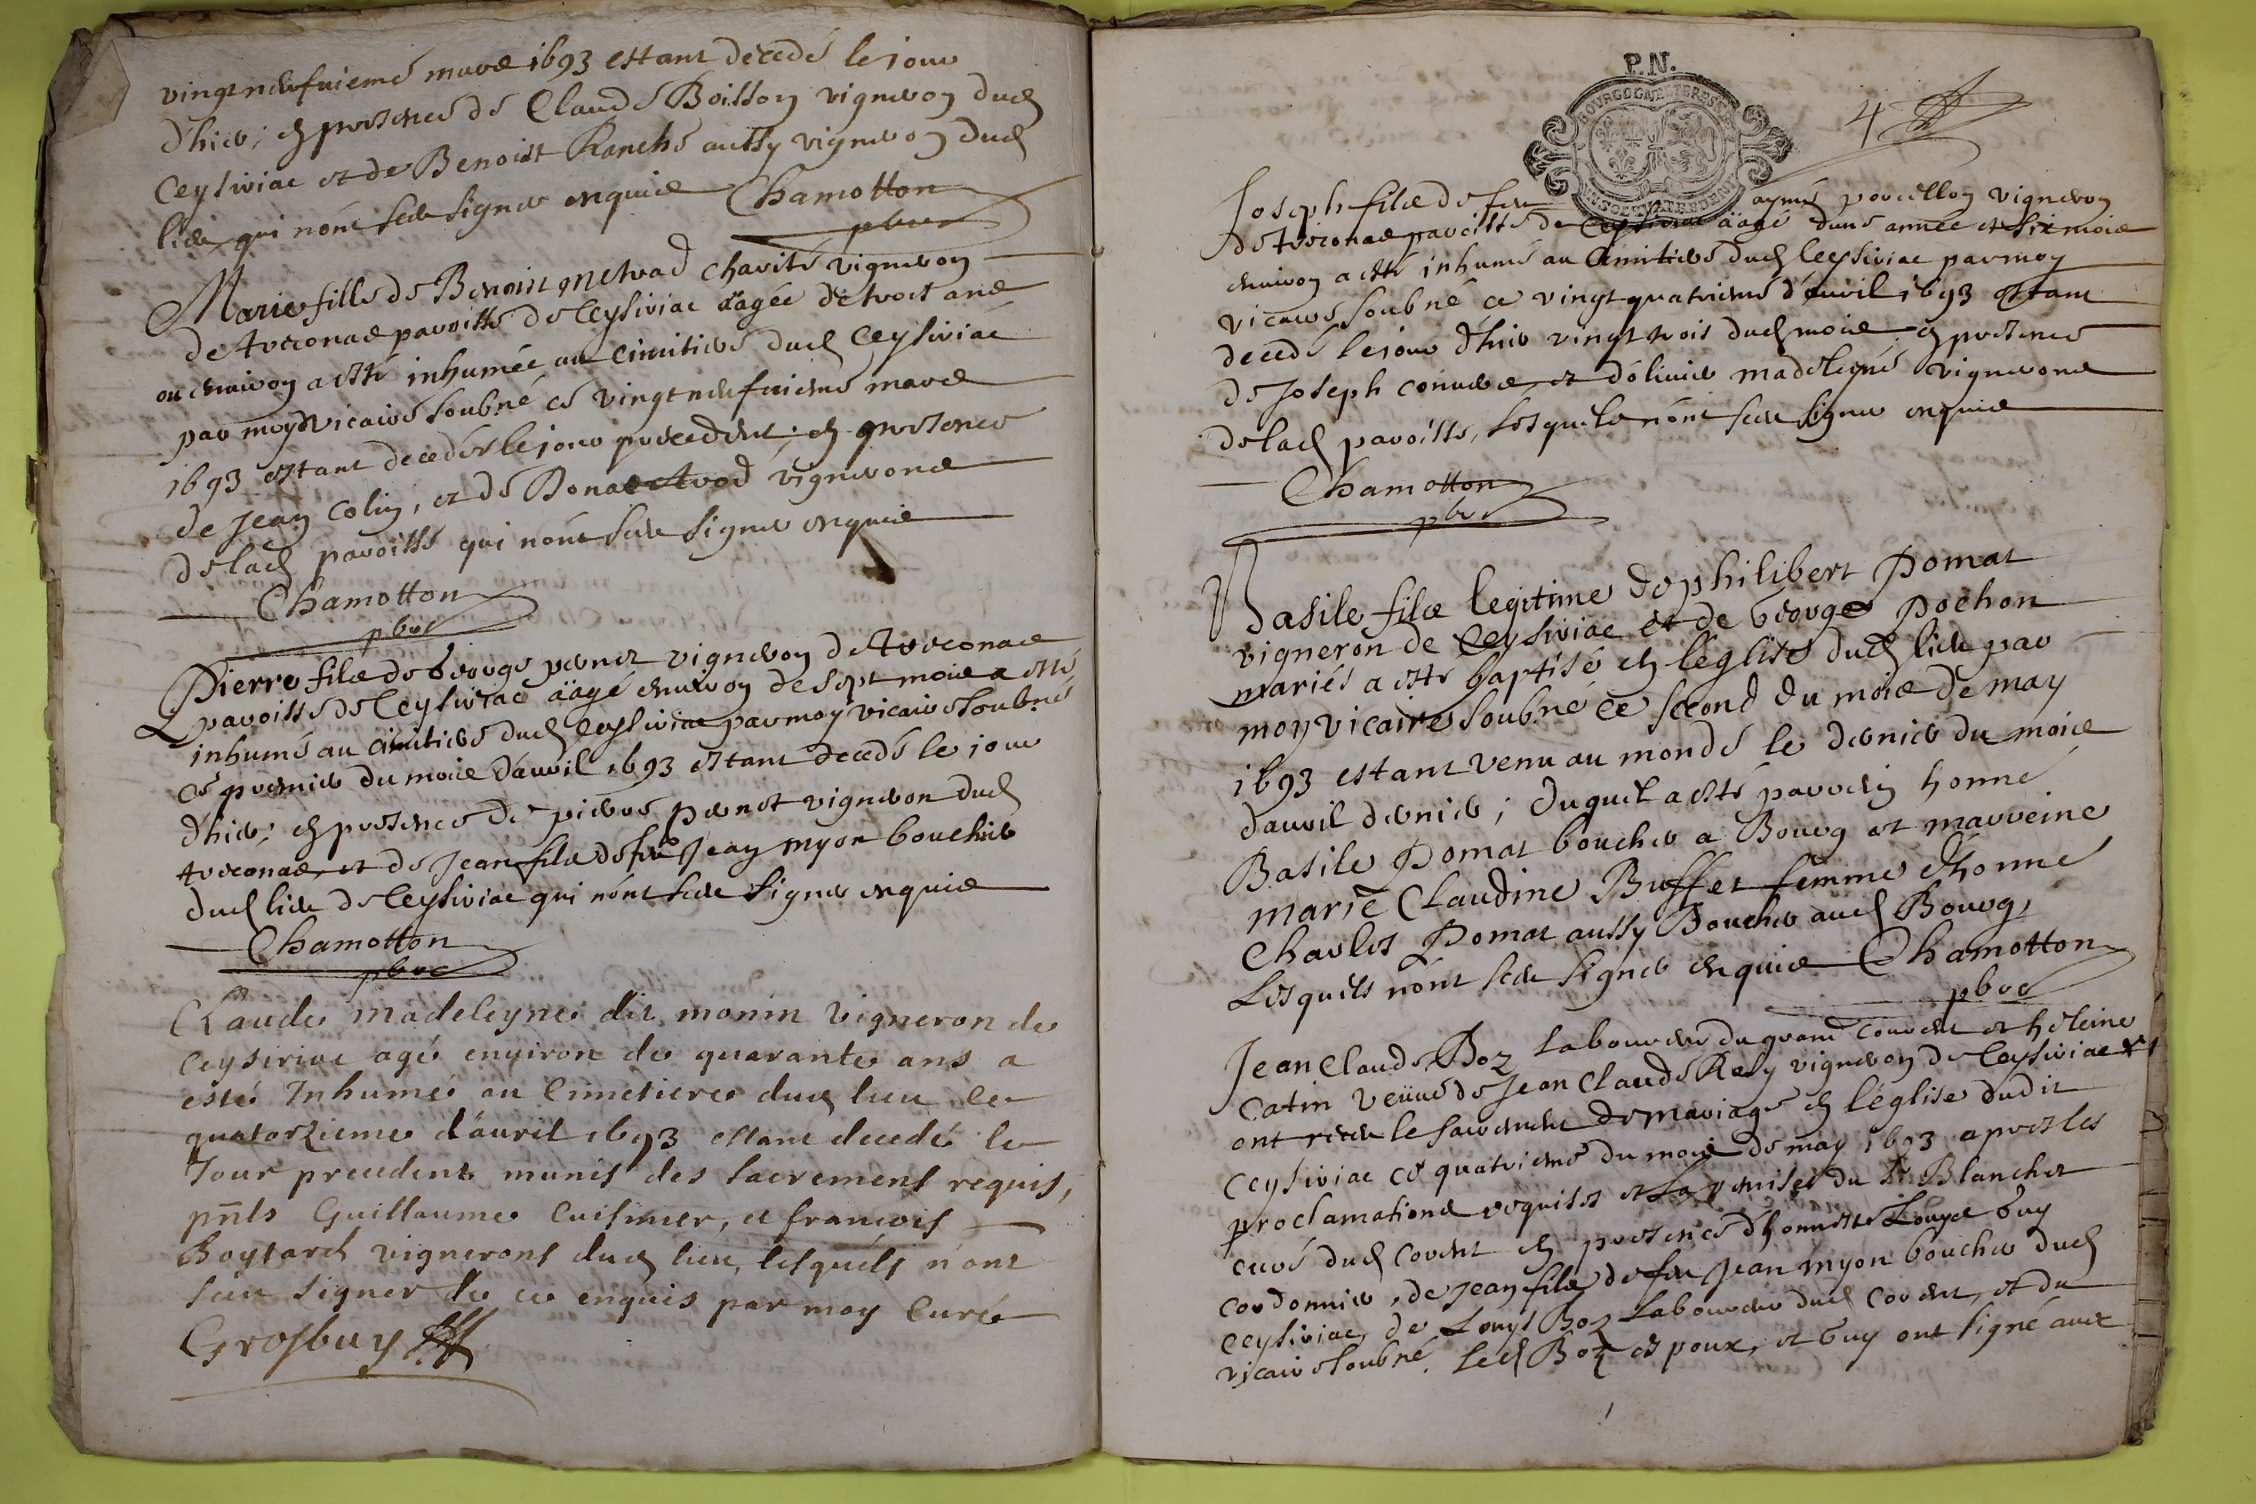 vingt neufuieme mars 1693 estant decedé le jour
d'hier; en presence de Claude Boisson vigneron dud
Ceysiriac et de Benoist Ranche aussy vigneron dud
lieu qui n'ont sceu signer enquis Chamotton
pbre
Marie fille de Benoist charité vigneron
de Treconas paroisse de Ceysiriac aagée de trois ans
ou environ a esté inhumée au cimitiere dud Ceysiriac
par moy vicaire soubné ce vingt neufuieme mars
1693 estant decedée le jour precedent; en presence
de Jean Colin, et de Bonad vignerons
de lad paroisse qui n'ont sceu signer enquis
Chamotton
pbre
Pierre fils de George pernet vigneron de Treconas
paroisse de Ceysiriac aagé environ de sept mois a esté
inhumé au cimitiere dud Ceysiriac par moy vicaire soubné
ce premier du mois d'auril 1693 estant decedé le jour
d'hier; en presence de pierre pernet vigneron dud
treconas, et de Jean fils de feu Jean myon bouchier
dud lieu de Ceysiriac qui n'ont sceu signer enquis
Chamotton
pbre
Claude Madeleyne dit monin vigneron de
Ceysiriac agé environ de quarante ans a
esté Inhumé au Cimetiere dud lieu le
quatorzieme d'auril 1693 estant decedé le
Jour precedent munis des sacrements requis,
pnts Guillaume Cuisinier, et françois
Boytard vignerons dud lieu, lesquels n'ont
sceu signer de ce enquis par moy Curé
Grosbuy
P.N.
4
Joseph fils de feu aymé porcellon vigneron
de Treconas paroisse de Ceysiriac aagé d'une année et six mois
environ a esté inhumé au cimitiere dud Ceysiriac par moy
vicaire soubné ce vingt quatrieme d'auril 1693 estant
decedé le jour d'hier vingt trois dud mois en presence
de Joseph convers, et d'olivier madeleyne vignerons
de lad paroisse, lesquels n'ont sceu signer enquis
Chamotton
pbre
Basile fils legitime de philibert Pomat
vigneron de Ceysiriac et de George Pochon
mariés a esté baptisé en l'eglise dud lieu par
moy vicaire soubné ce second du mois de may
1693 estant venu au monde le dernier du mois
d'auril dernier; duquel a esté parrein honné
Basile Pomat boucher a Bourg et marreine
marie Claudine Buffet femme d'honné
Charles Pomat aussy Boucher aud Bourg,
Lesquels n'ont sceu signer enquis Chamotton
pbre
Jean Claude Boz laboureur du grand Couvent et heleine
Catin veuue de Jean Claude Rely vigneron de Ceysiriac
ont receu le sacrement de mariage en l'église dudit
Ceysiriac ce quatrieme du mois de may 1693 apres les
proclamations requises et la remise du Sr Blanchet
curé dud Covent en presence d'honneste Louys Guy
Cordonnier, de Jean fils de feu Jean myon boucher dud
Ceysiriac, de Louys Boz laboureur dud Covent, et du
vicaire soubné. led Boz espoux, et Guy ont signé avec